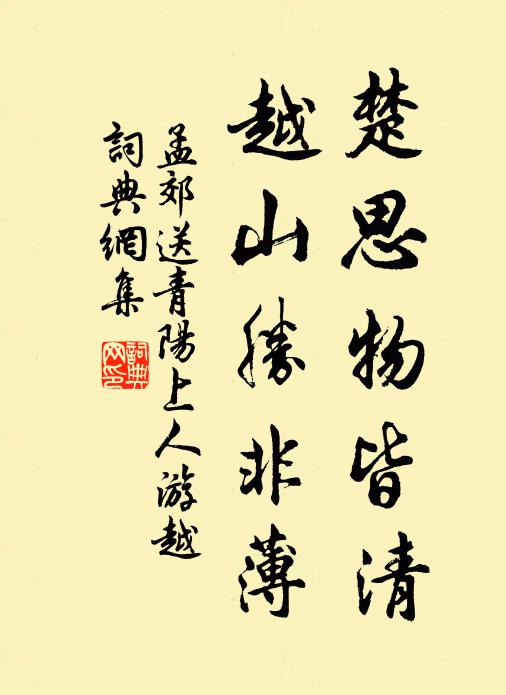 楚思物皆清
越山勝非薄
孟郊送青陽上人游越
詞典網集
詞典網印